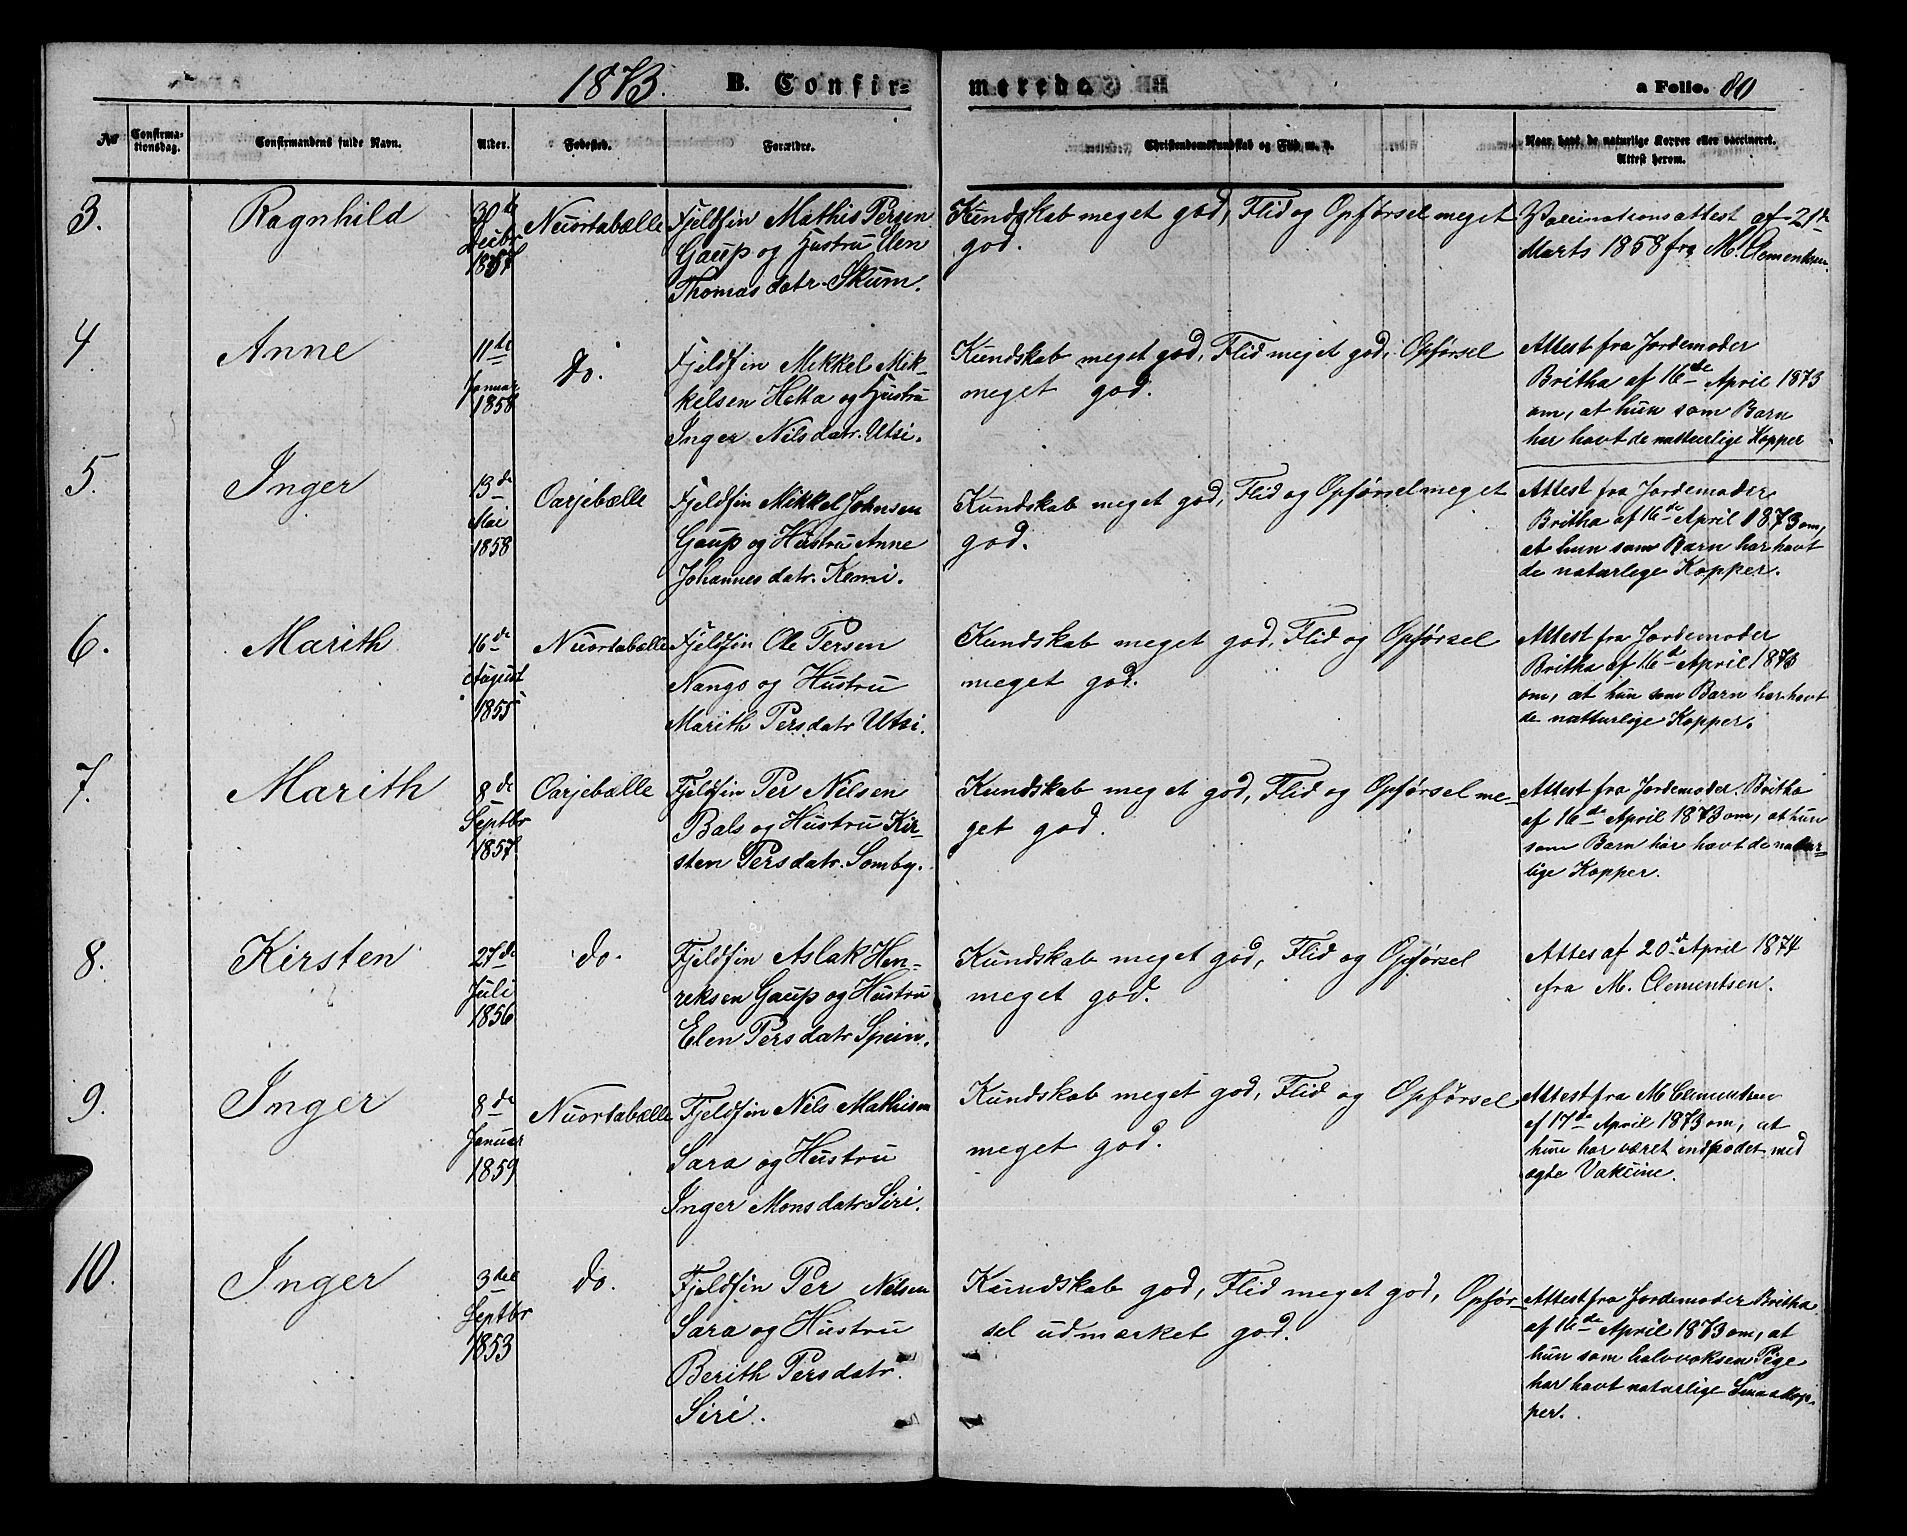 1873. B. Confirmerede. a Folio. 80
№ Confirmationsdag. Confirmandens fulde Navn. Alder. Fødested. Forældre. Christendomskundskab og Flid m. v. Naar havt de naturlige Kopper eller vaccineret. Attest herom.
3. Ragnhild
30te Decbr 1857
Nuortabælle
Fjeldfin Mathis Persen
Gaup og Hustru Elen
Thomasdatr. Skum.
Kundskab meget god, Flid og Opførsel meget
god.
Vaccinationsattest af 21de
Marts 1858 fra M. Clementsen.
4. Anne
11te
Januar
1858
do.
Fjeldfin Mikkel Mik-
kelsen Hætta og Hustru
Inger Nilsdatr. Utsi.
Kundskab meget god, Flid meget god, Opførsel
meget god.
Attest fra Jordemoder
Britha af 16de April 1873
om, at hun som Barn
har havt de natturlige Kopper
5. Inger
13de
Mai
1858
Oarjebælle
Fjeldfin Mikkel Johnsen
Gaup og Hustru Anne
Johannesdatr. Kemi.
Kundskab meget god, Flid og Opførsel meget
god.
Attest fra Jordemoder
Britha af 16de April 1873 om,
at hun som Barn har havt
de naturlige Kopper.
6. Marith
16de
August
1855
Nuortabælle
Fjeldfin Ole Persen
Nango og Hustru
Marith Persdatr Utsi.
Kundskab meget god, Flid og Opførsel
meget god.
Attest fra Jordemoder
Britha af 16de April 1873
om, at hun som Barn har havt
de natturlige Kopper.
7. Marith
8de
Septbr
1857
Oarjebælle
Fjeldfin Per Nilsen
Bals og Hustru Kir-
sten Persdatr. Somby.
Kundskab meget god, Flid og Opførsel me-
get god.
Attest fra Jordemoder Britha
af 16de April 1873 om, at hun
som Barn har havt de natur-
lige Kopper.
8. Kirsten
27de
Juli
1856
do.
Fjeldfin Aslak Hen-
reksen Gaup og Hustru
Elen Persdatr Spein.
Kundskab meget god, Flid og Opførsel
meget god.
Attes af 20d April 1874
fra M. Clementsen.
9. Inger
8de
Januar
1859
Nuortabælle
Fjeldfin Nils Mathisen
Sara og Hustru
Inger Monsdatr Siri.
Kundskab meget god, Flid og Opførsel
meget god.
Attest fra M Clementsen
af 17de April 1873 om, at
hun har været indpodet med
ægte Vakcine.
10. Inger
3die
Septbr
1853
do.
Fjeldfin Per Nilsen
Sara og Hustru
Berith Persdatr.
Siri.
Kundskab god, Flid meget god, Opfør-
sel udmærket god.
Attest fra Jordemoder Britha
af 16de April 1873 om, at
hun som halvvoksen Pige
har havt naturlige Smaakop-
per.